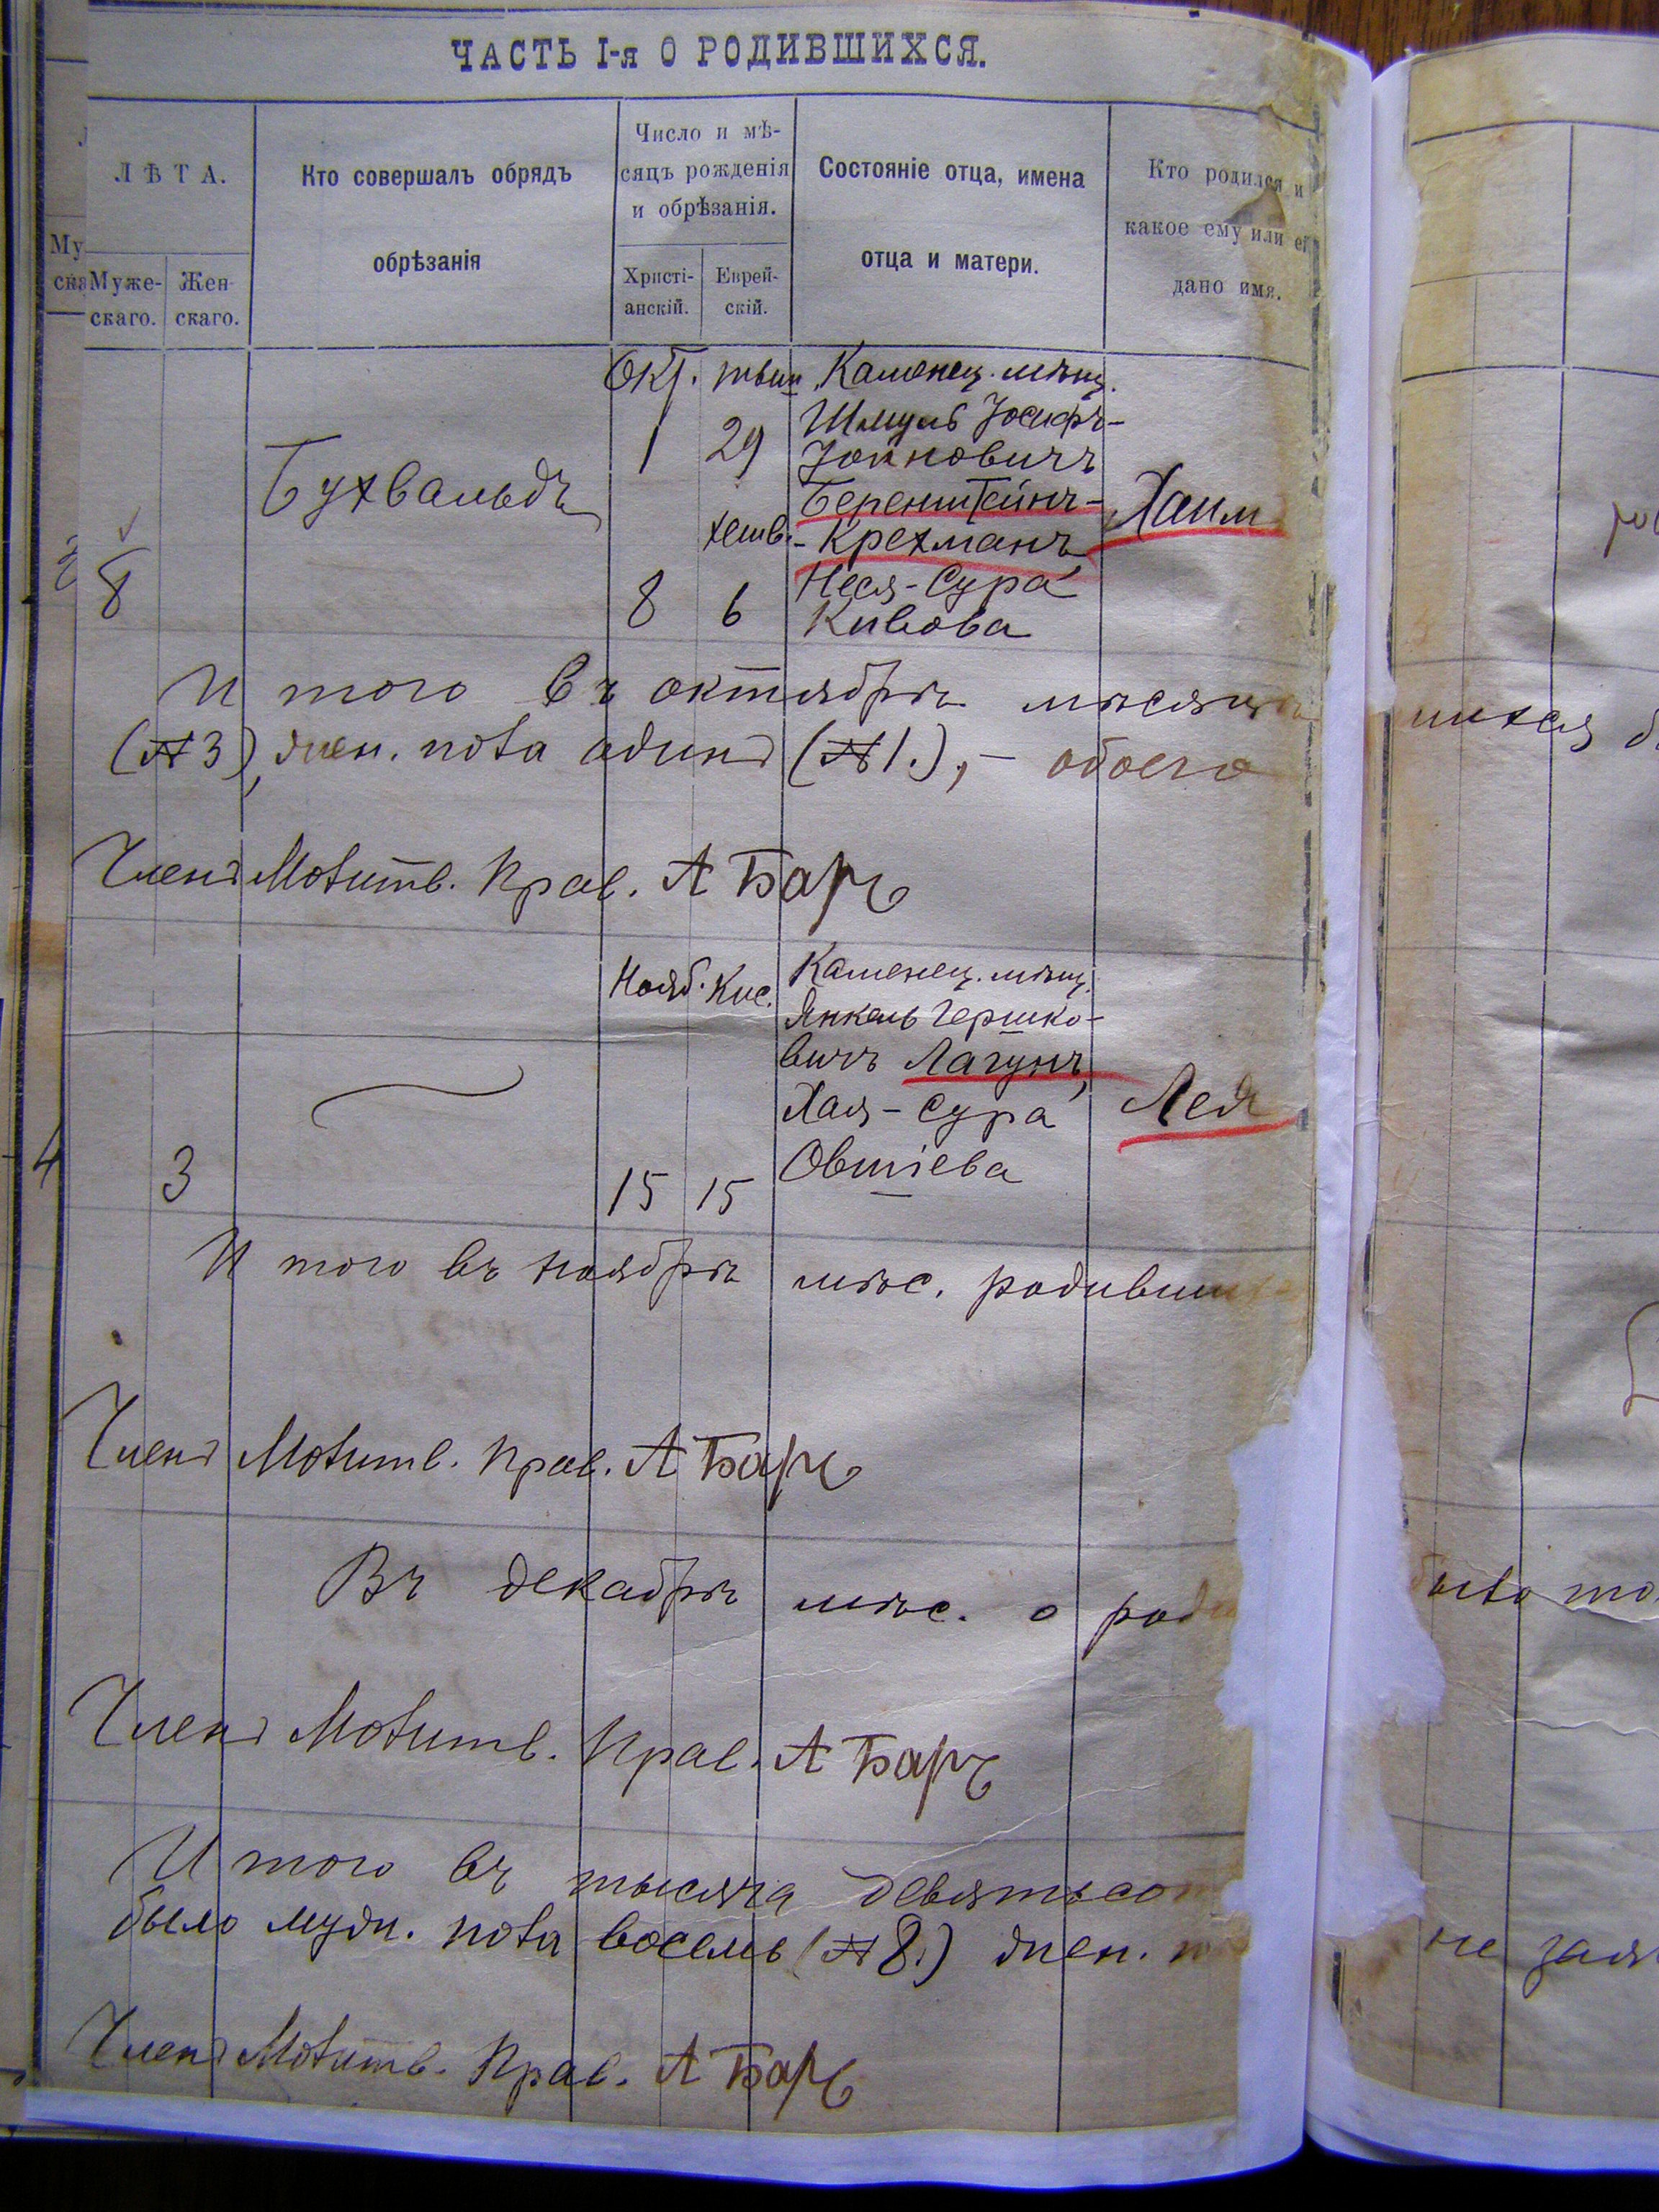 ЧАСТЬ I-я О РОДИВШИХСЯ.
ЛѢТА.
Муже-
скаго.
Жен-
скаго.
Кто совершалъ обрядъ
обрѣзанія
Число и мѣ-
сяцъ рожденія
и обрѣзанія.
Христі-
анскій.
Еврей-
скій.
Состояніе отца, имена
отца и матери.
Кто родился и
какое ему или ей
дано имя.
8
Бухвальдъ
Окт.
1
8
29
хешв.
6
Каменец. мѣщ.
Шмуль Іосифъ-
Іойновичъ
Беренштейнъ-
-Крехманъ
Неся-Сура
Кивова
Хаим
И того въ октябрѣ мѣсяцѣ
(№3), жен. пола одинъ (№1.), - обоего
Членъ Молитв. Прав. А Баръ
4
3
Нояб. Кис.
15 15
Каменец. мѣщ.
Янкель Гершко-
вичъ Лагунъ,
Хая-Сура
Овшіева
Лея
И того въ ноябрѣ мѣс. родивших
Членъ Молитв. Прав. А Баръ
Въ декабрѣ мѣс. о род
Членъ Молитв. Прав. А Баръ
И того въ тысяча девятьсот
было муж. пола восемь (№8.) жен. п
Членъ Молитв. Прав. А Баръ